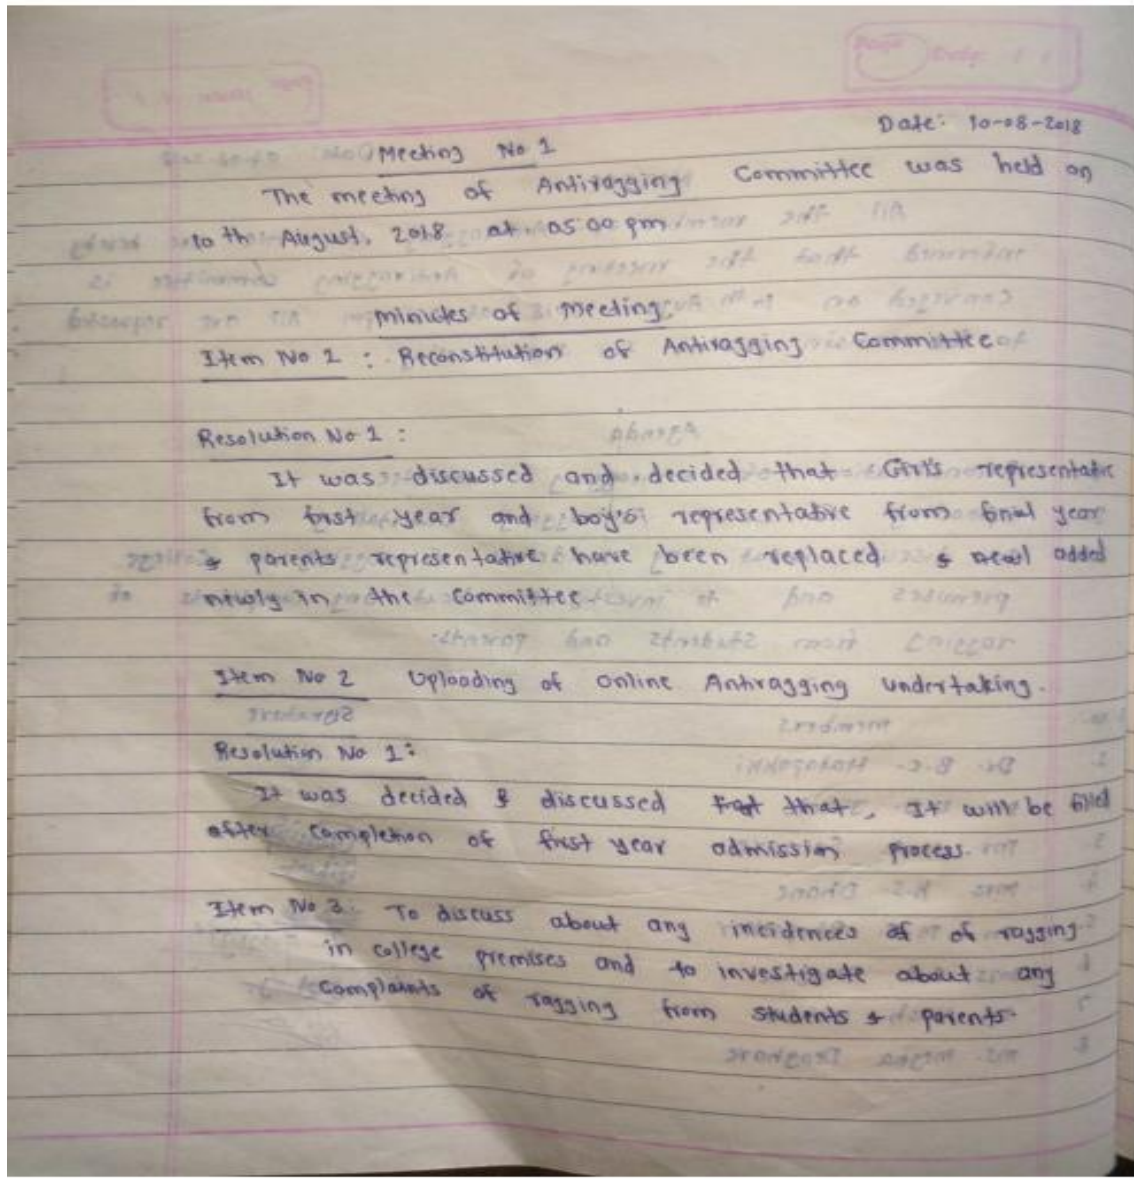 Date: 10-08-2018
Meeting No 1
The meeting of Antiragging Committee was held on
10th August, 2018 at 05:00 pm
Minutes of Meeting.
Item No 1 : Reconstitution of Antiragging Committee
Resolution No 1 :
It was discussed and decided that Girl's representative
from first year and boy's representative from final year
& parents representative have been replaced & added
newly in the Committee.
Item No 2 Uploading of Online Antiragging undertaking.
Resolution No 1:
It was decided & discussed that, It will be filled
after completion of first year admission process.
Item No 3: To discuss about any incidences of of ragging
in college premises and to investigate about any
complaints of ragging from students & parents.